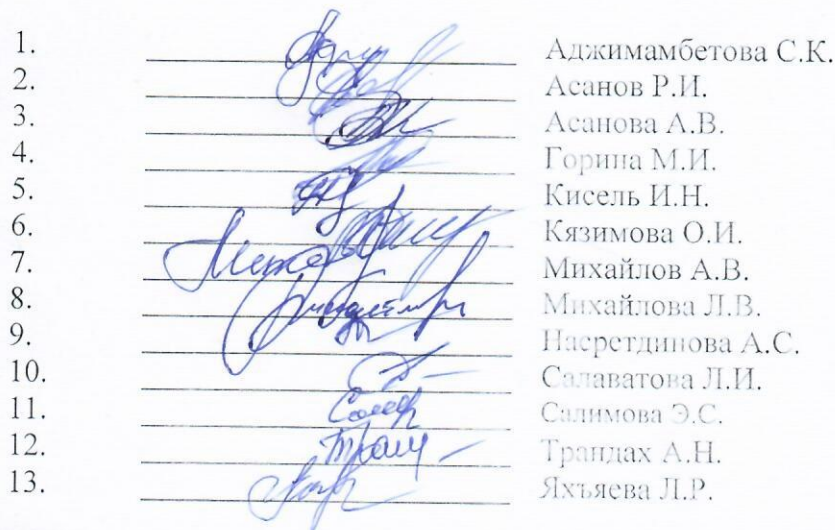 1. Аджимамбетова С.К.
2. Асанов Р.И.
3. Асанова А.В.
4. Горина М.И.
5. Кисель И.Н.
6. Кязимова О.И.
7. Михайлов А.В.
8. Михайлова Л.В.
9. Насретдинова А.С.
10. Салаватова Л.И.
11. Салимова Э.С.
12. Трандах А.Н.
13. Яхъяева Л.Р.